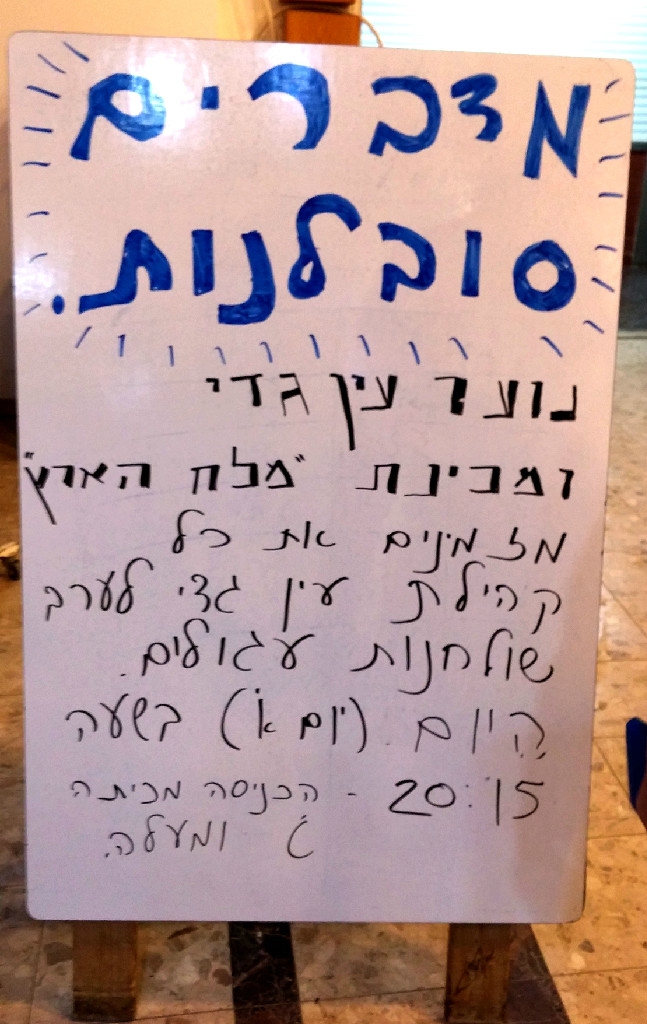 מדברים
סובלנות.
נוער עין גדי
ומכינת "מלח הארץ"
מזמינים את כל
קהילת עין גדי לערב
שולחנות עגולים.
היום (יום א') בשעה
20:15 - הכניסה מכיתה
ג' ומעלה.